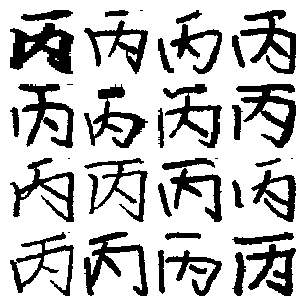 丙丙丙丙
丙丙丙丙
丙丙丙丙
丙丙丙丙